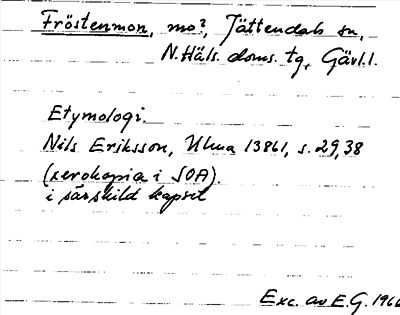 Fröstenmon, mo?, Jättendals sn,
N.Häls. doms. tg, Gävl.l.
Etymologi.
Nils Eriksson, Ulma 13861, s. 29, 38
(xerokopia i SOA).
i särskild kapsel
Exc. av E.G. 1966